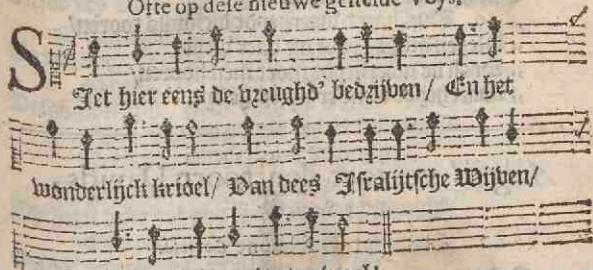 Ofte op dese nieuwe gestelde Voys.
SIet hier eens de vreughd' bedrijven / En het
wonderlijck krioel / Van dees Isralijtsche Wijven /